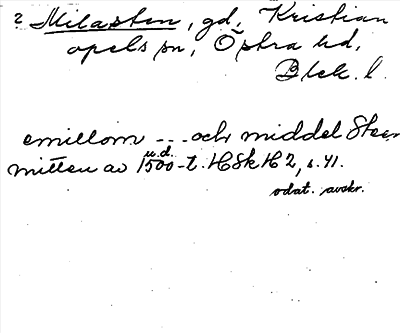 2 Milasten, gd, Kristian
opels sn, Östra hd,
Blek. l.
emillom --- och middel Steen
u.d.
mitten av 1500-t. HSkH 2, s. 41.
odat. avskr.